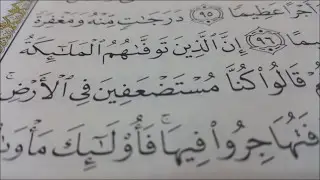 أَجْرًا عَظِيمًا ٩٥ دَرَجَٰتٍ مِّنْهُ وَمَغْفِرَةً
يمًا ٩٦ إِنَّ ٱلَّذِينَ تَوَفَّىٰهُمُ ٱلْمَلَٰٓئِكَةُ
قَالُوا۟ كُنَّا مُسْتَضْعَفِينَ فِى ٱلْأَرْضِ ۚ
فَتُهَاجِرُوا۟ فِيهَا ۚ فَأُو۟لَٰٓئِكَ مَأْوَىٰ